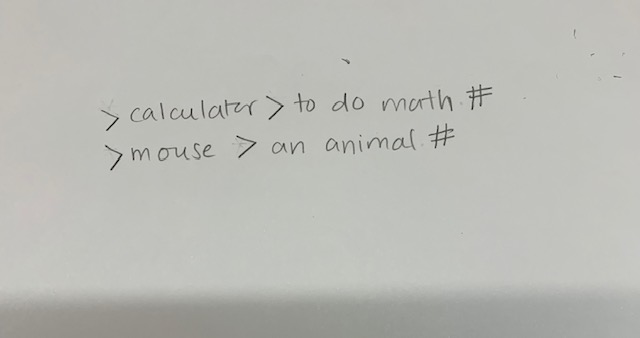 > calculater > to do math #
> mouse > an animal #